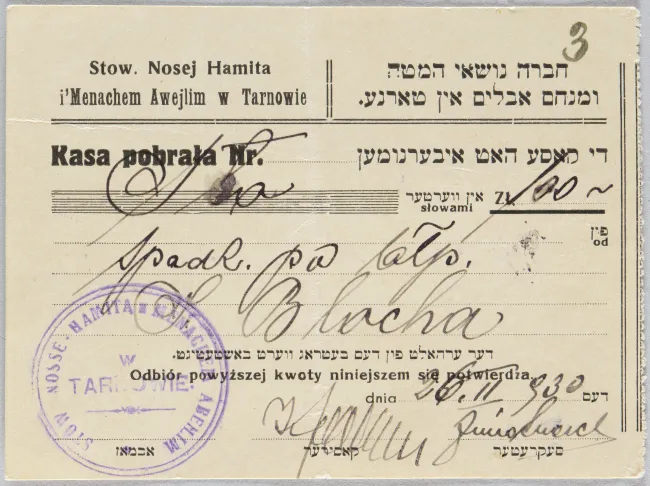 3
Stow. Nosej Hamita
i'Menachem Awejlim w Tarnowie
חברה נושאי המטה
ומנחם אבלים אין טארנע.
Kasa pobrała Nr.
די קאסע האט איבערגומען
אין ווערטער
słowami
Zł 100 ~
פין
od
spadk. po błp.
S. Blocha
דער ערהאלט פין דעם בעטראג ווערט באשטעטיגט.
Odbiór powyższej kwoty niniejszem się potwierdza.
dnia
II 930
דעם
אבמאן
קאסירער
סעקרעטער
STOW NOSSE-HAMITA MENACHEM ABEHIM
W
TARNOWIE